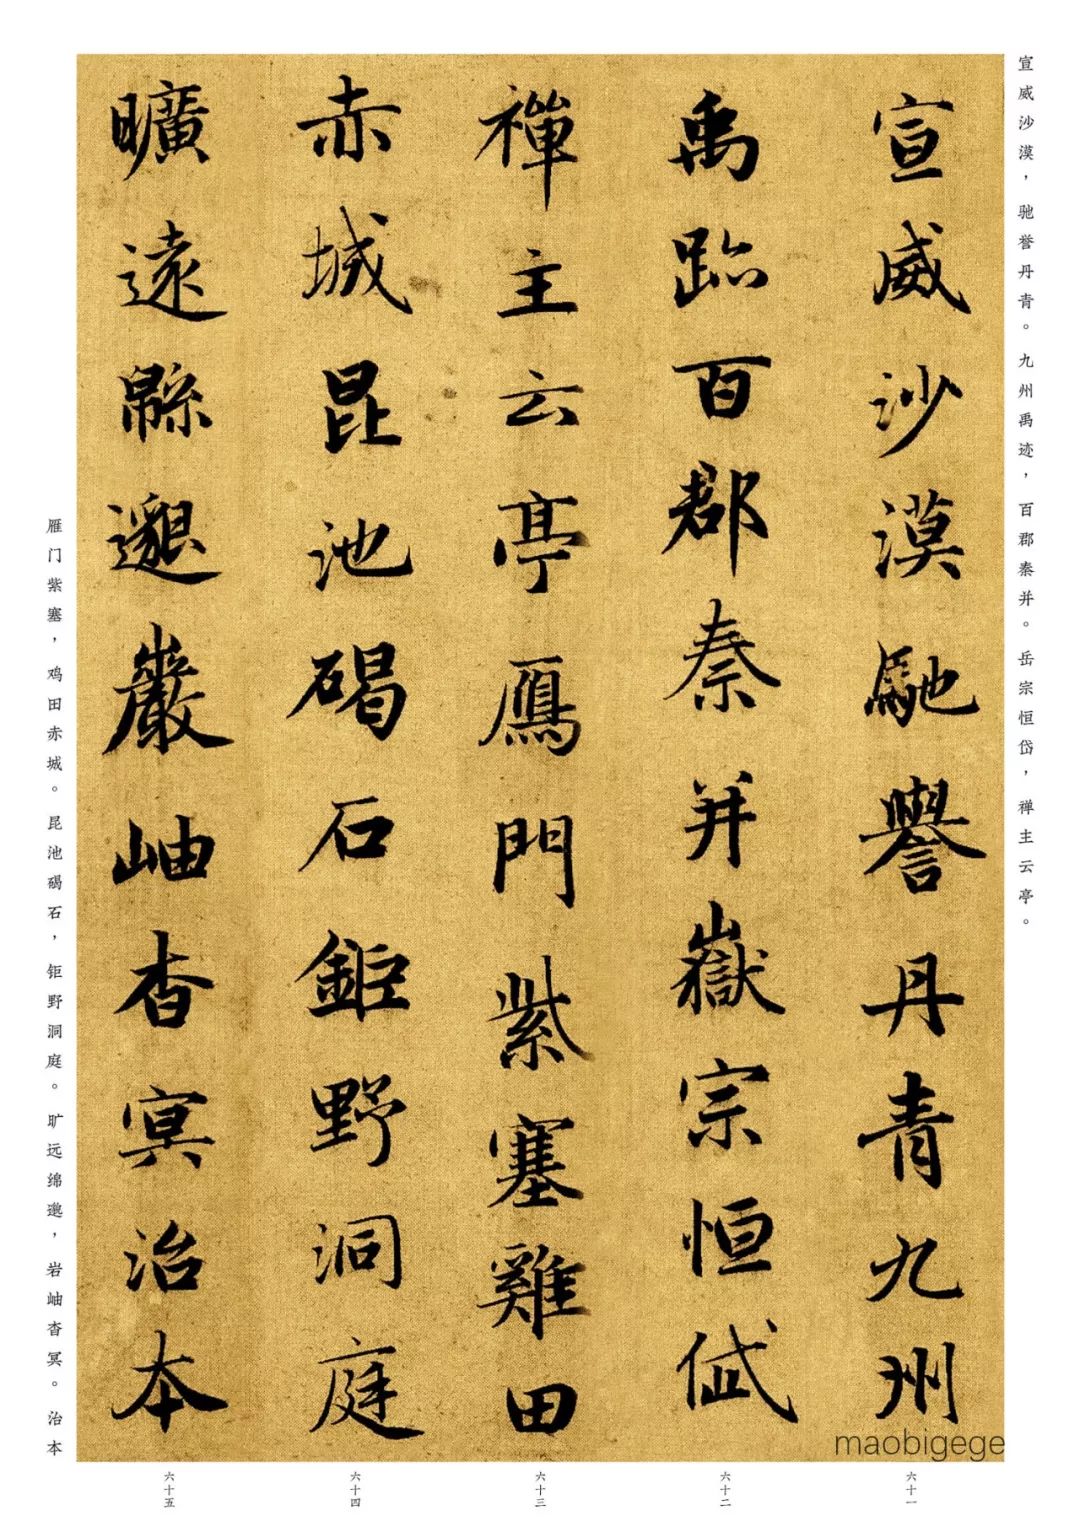 宣威沙漠，驰誉丹青。九州禹迹，百郡秦并。岳宗恒岱，禅主云亭。
宣威沙漠馳譽丹青九州
禹跡百郡秦并嶽宗恒岱
禪主云亭鴈門紫塞雞田
赤城昆池碣石鉅野洞庭
曠遠緜邈巖岫杳冥治本
雁门紫塞，鸡田赤城。昆池碣石，钜野洞庭。旷远绵邈，岩岫杳冥。治本
六十一
六十二
六十三
六十四
六十五
maobigege